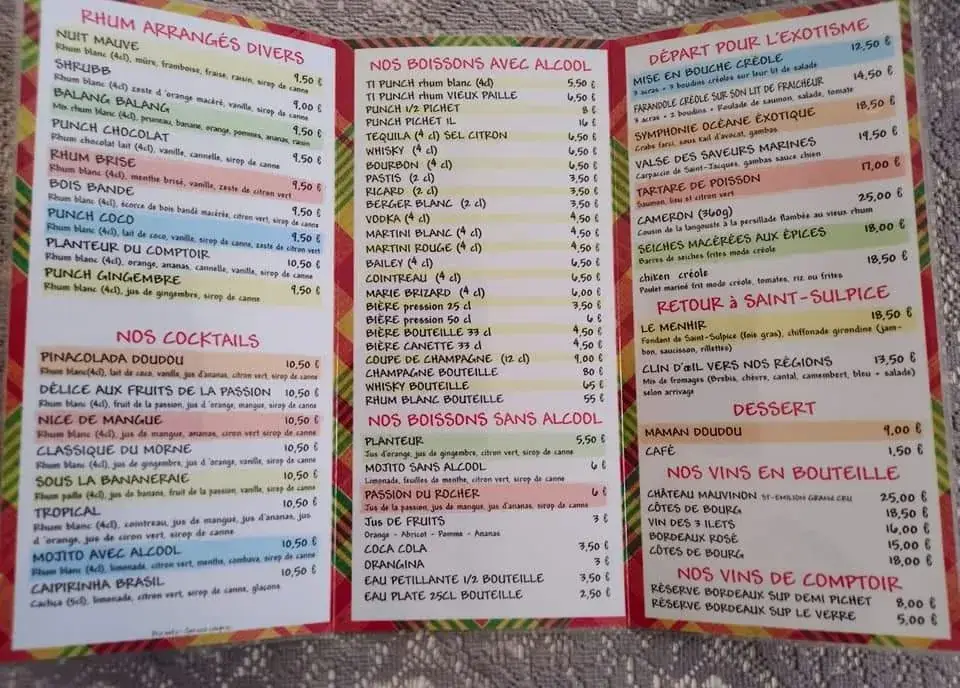 RHUM ARRANGÉS DIVERS
NUIT MAUVE 9,50 €
Rhum blanc (4cl), mûre, framboise, fraise, raisin, sirop de canne
SHRUBB 9,00 €
Rhum blanc (4cl) zeste d'orange macéré, vanille, sirop de canne
BALANG BALANG 9,50 €
Mix rhum blanc (4cl), pruneau, banane, orange, pommes, ananas, raisin
PUNCH CHOCOLAT 9,50 €
Rhum chocolat lait (4cl), vanille, cannelle, sirop de canne
RHUM BRISE 9,50 €
Rhum blanc (4cl), menthe brisé, vanille, zeste de citron vert
BOIS BANDE 9,50 €
Rhum blanc (4cl), écorce de bois bandé macérée, citron vert, sirop de canne
PUNCH COCO 9,50 €
Rhum blanc (4cl), lait de coco, vanille, sirop de canne, zeste de citron vert
PLANTEUR DU COMPTOIR 10,50 €
Rhum blanc (4cl), orange, ananas, cannelle, vanille, sirop de canne
PUNCH GINGEMBRE 9,50 €
Rhum blanc (4cl), jus de gingembre, sirop de canne
NOS COCKTAILS
PINACOLADA DOUDOU 10,50 €
Rhum blanc(4cl), lait de coco, vanille, jus d'ananas, citron vert, sirop de canne
DÉLICE AUX FRUITS DE LA PASSION 10,50 €
Rhum blanc (4cl), fruit de la passion, jus d'orange, mangue, sirop de canne
NICE DE MANGUE 10,50 €
Rhum blanc (4cl), jus de mangue, ananas, citron vert sirop de canne
CLASSIQUE DU MORNE 10,50 €
Rhum blanc (4cl), jus de gingembre, jus d'orange, vanille, sirop de canne
SOUS LA BANANERAIE 10,50 €
Rhum paille (4cl), jus de banane, fruit de la passion, vanille, sirop de canne
TROPICAL 10,50 €
Rhum blanc (4cl), cointreau, jus de mangue, jus d'ananas, jus
d'orange, jus de citron vert, sirop de canne
MOJITO AVEC ALCOOL 10,50 €
Rhum blanc (4cl), limonade, citron vert, menthe, combava, sirop de canne
CAIPIRINHA BRASIL 10,50 €
Cachca (5cl), limonade, citron vert, sirop de canne, glacons
NOS BOISSONS AVEC ALCOOL
TI PUNCH rhum blanc (4cl) 5,50 €
TI PUNCH rhum VIEUX PAILLE 6,50 €
PUNCH 1/2 PICHET 8 €
PUNCH PICHET 1L 16 €
TEQUILA (4 cl) SEL CITRON 6,50 €
WHISKY (4 cl) 6,50 €
BOURBON (4 cl) 6,50 €
PASTIS (2 cl) 3,50 €
RICARD (2 cl) 3,50 €
BERGER BLANC (2 cl) 3,50 €
VODKA (4 cl) 4,50 €
MARTINI BLANC (4 cl) 4,50 €
MARTINI ROUGE (4 cl) 4,50 €
BAILEY (4 cl) 6,50 €
COINTREAU (4 cl) 6,50 €
MARIE BRIZARD (4 cl) 6,00 €
BIÈRE pression 25 cl 3,50 €
BIÈRE pression 50 cl 6 €
BIÈRE BOUTEILLE 33 cl 4,50 €
BIÈRE CANETTE 33 cl 4,50 €
COUPE DE CHAMPAGNE (12 cl) 9,00 €
CHAMPAGNE BOUTEILLE 80 €
WHISKY BOUTEILLE 65 €
RHUM BLANC BOUTEILLE 55 €
NOS BOISSONS SANS ALCOOL
PLANTEUR 5,50 €
Jus d'orange, jus de gingembre, citron vert, sirop de canne
MOJITO SANS ALCOOL 6 €
Limonade, feuilles de menthe, citron vert, sirop de canne
PASSION DU ROCHER 6 €
Jus de la passion, jus de mangue, jus d'ananas, sirop de canne
JUS DE FRUITS 3 €
Orange - Abricot - Pomme - Ananas
COCA COLA 3,50 €
ORANGINA 3 €
EAU PETILLANTE 1/2 BOUTEILLE 3,50 €
EAU PLATE 25CL BOUTEILLE 2,50 €
DÉPART POUR L'EXOTISME
MISE EN BOUCHE CRÉOLE 12,50 €
3 acras + 3 boudins créoles sur leur lit de salade
FARANDOLE CRÉOLE SUR SON LIT DE FRAICHEUR 14,50 €
3 acras + 2 boudins + Roulade de saumon, salade, tomate
SYMPHONIE OCÉANE ÉXOTIQUE 18,50 €
Crabe farci, sous tail d'avocat, gambas
VALSE DES SAVEURS MARINES 19,50 €
Carpaccio de Saint-Jacques, gambas sauce chien
TARTARE DE POISSON 17,00 €
Saumon, lieu et citron vert
CAMERON (360g) 25,00 €
Cousin de la langouste à la persillade flambée au vieux rhum
SEICHES MACÉRÉES AUX ÉPICES 18,00 €
Barres de seiches frites mode créole
chiken créole 18,50 €
Poulet mariné frit mode créole, tomates, riz ou frites
RETOUR à SAINT-SULPICE
LE MENHIR 18,50 €
Fondant de Saint-Sulpice (foie gras), chiffonade girondine (jam-
bon, saucisson, rillettes)
CLIN D'ŒIL VERS NOS RÉGIONS 13,50 €
Mix de fromages (Brebis, chèvre, cantal, camembert, bleu + salade)
selon arrivage
DESSERT
MAMAN DOUDOU 9,00 €
CAFÉ 1,50 €
NOS VINS EN BOUTEILLE
CHÂTEAU MAUVINON ST-EMILION GRAND CRU 25,00 €
CÔTES DE BOURG 18,50 €
VIN DES 3 ILETS 16,00 €
BORDEAUX ROSÉ 15,00 €
CÔTES DE BOURG 18,00 €
NOS VINS DE COMPTOIR
RÉSERVE BORDEAUX SUP DEMI PICHET 8,00 €
RÉSERVE BORDEAUX SUP LE VERRE 5,00 €